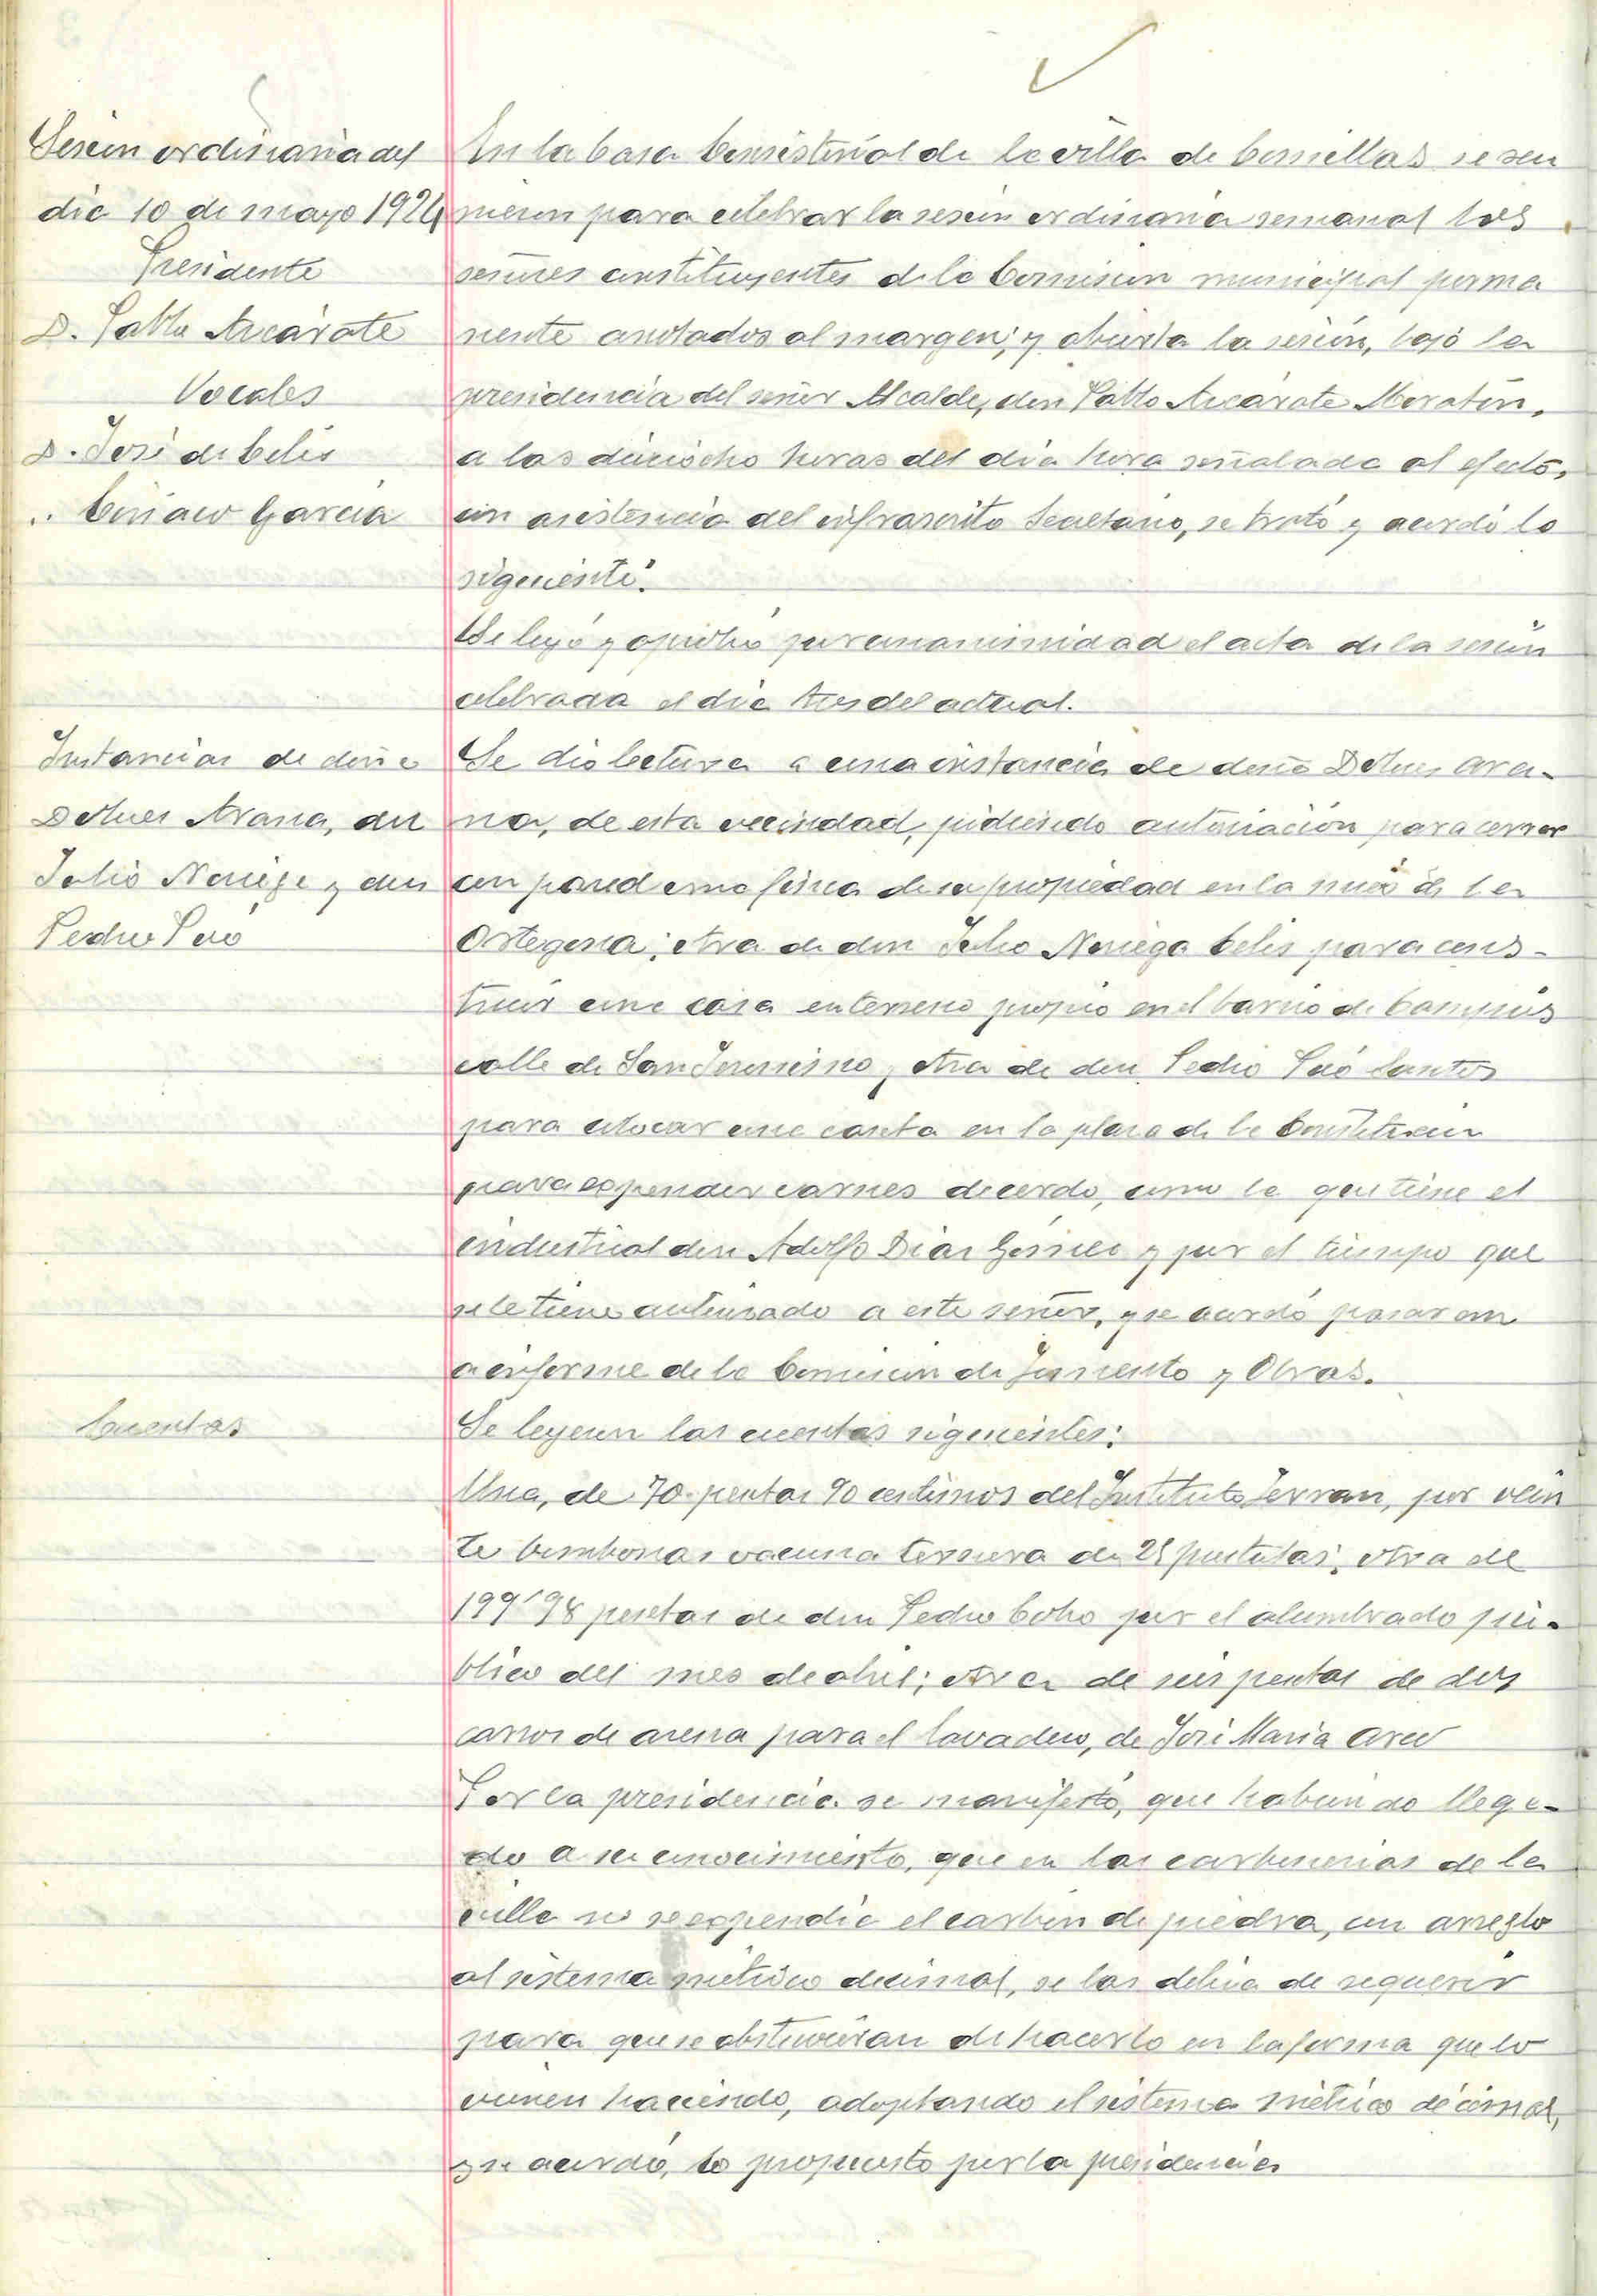 Sesión ordinaria del
dia 10 de mayo 1924
Presidente
D. Pablo Azcárate
Vocales
D. José de Celis
" Ciriaco Garcia
En la Casa Consistorial de la villa de Comillas se reu
nieron para celebrar la sesión ordinaria semanal los
señores constituyentes de la Comisión municipal perma
nente anotados al margen; y abierta la sesión, bajo la
presidencia del señor Alcalde, don Pablo Azcárate Moratín,
a las dieciocho horas del dia hora señalada al efecto,
con asistencia del infrascrito Secretario, se trató y acordó lo
siguiente:
Se leyó y aprobó por unanimidad el acta de la sesión
celebrada el dia tres del actual.
Instancias de doña
Dolores Arana, don
Julio Noriega y don
Pedro Poó
Se dio lectura a una instancia de doña Dolores Ara-
na, de esta vecindad, pidiendo autorización para cerrar
con pared una finca de su propiedad en la mies de la
Ortegona; otra de don Julio Noriega Celis para cons-
truir una casa en terreno propio en el barrio de Campíos
calle de San Jeronimo, otra de don Pedro Poó Santos
para colocar una caseta en la plaza de la Constitución
para expender carnes de cerdo, como la que tiene el
industrial don Adolfo Diaz Gómez y por el tiempo que
se le tiene autorizado a este señor, y se acordó pasaran
a informe de la Comisión de Fomento y Obras.
Cuentas
Se leyeron las cuentas siguientes:
Una, de 70 pesetas 90 centimos del Instituto Ferran, por vein
te bombonas vacuna ternera de 25 pustulas; otra de
199'98 pesetas de don Pedro Cobo por el alumbrado pú-
blico del mes de abril; otra de seis pesetas de dos
carros de arena para el lavadero, de José Maria Arce
Por la presidencia se manifestó, que habiendo llega-
do a su conocimiento, que en las carbonerias de la
villa no se expendia el carbón de piedra, con arreglo
al sistema métrico decimal, se las debia de requerir
para que se abstuvieran de hacerlo en la forma que lo
vienen haciendo, adoptando el sistema métrico decimal,
y se acordó, lo propuesto por la presidencia